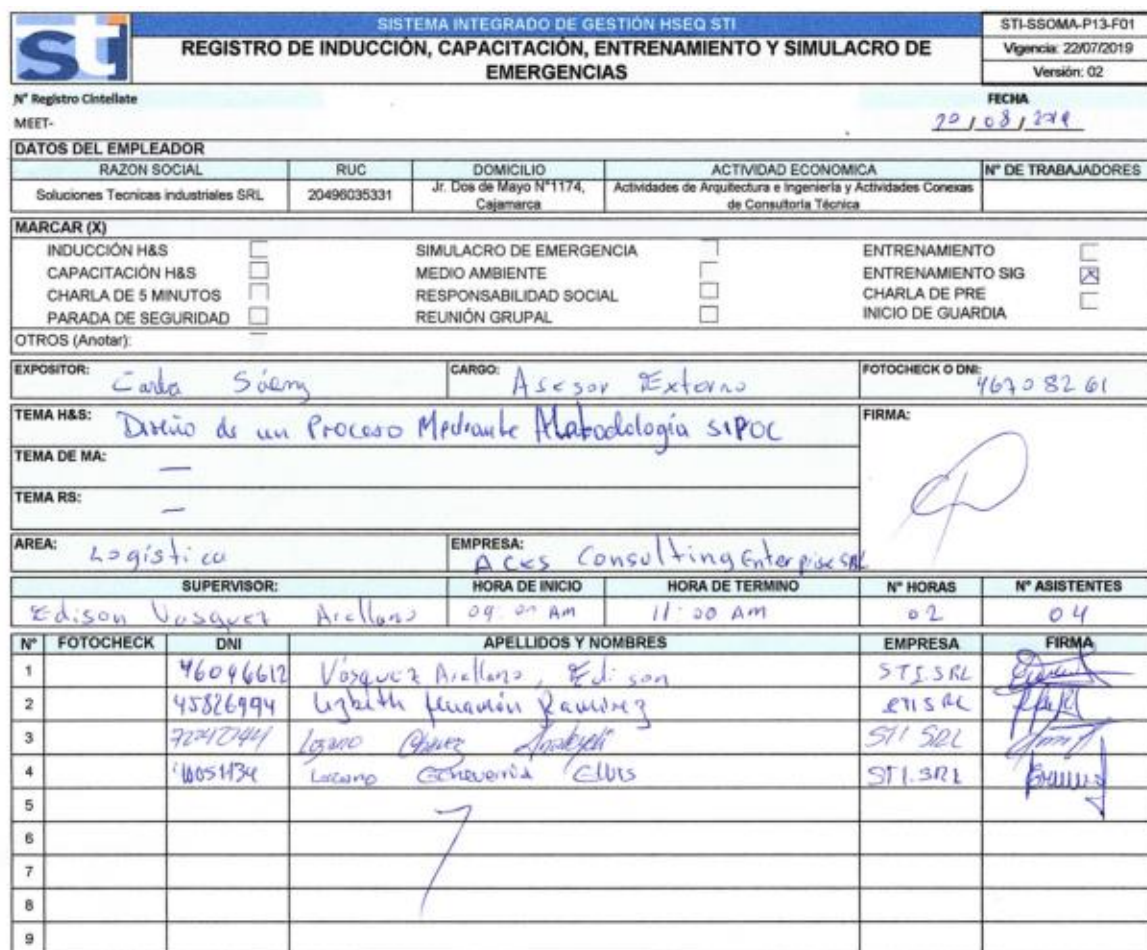 sti
SISTEMA INTEGRADO DE GESTIÓN HSEQ STI
REGISTRO DE INDUCCIÓN, CAPACITACIÓN, ENTRENAMIENTO Y SIMULACRO DE
EMERGENCIAS
STI-SSOMA-P13-F01
Vigencia: 22/07/2019
Versión: 02
N° Registro Cintellate
MEET-
FECHA
20/08/2019
DATOS DEL EMPLEADOR
RAZON SOCIAL RUC DOMICILIO ACTIVIDAD ECONOMICA N° DE TRABAJADORES
Soluciones Tecnicas industriales SRL 20496035331 Jr. Dos de Mayo N°1174, Cajamarca Actividades de Arquitectura e Ingeniería y Actividades Conexas de Consultoría Técnica
MARCAR (X)
INDUCCIÓN H&S SIMULACRO DE EMERGENCIA ENTRENAMIENTO
CAPACITACIÓN H&S MEDIO AMBIENTE ENTRENAMIENTO SIG X
CHARLA DE 5 MINUTOS RESPONSABILIDAD SOCIAL CHARLA DE PRE
PARADA DE SEGURIDAD REUNIÓN GRUPAL INICIO DE GUARDIA
OTROS (Anotar):
EXPOSITOR: Carla CARGO: Asesor Externo FOTOCHECK O DNI: 46708261
TEMA H&S: Diseño de un Proceso Mediante Metodología SIPOC FIRMA:
TEMA DE MA: —
TEMA RS: —
AREA: Logística EMPRESA: Consulting Enterprise SRL
SUPERVISOR: HORA DE INICIO HORA DE TERMINO N° HORAS N° ASISTENTES
Edison Vasquez Arellano 09:00 Am 11:00 AM 02 04
N° FOTOCHECK DNI APELLIDOS Y NOMBRES EMPRESA FIRMA
1 46096612 Vásquez Arellano, Edison STI.SRL
2 45826994 Lizbeth Ramirez STI SRL
3 Lozano Chávez STI SRL
4 Lozano Echeverría Elvis STI.SRL
5
6
7
8
9